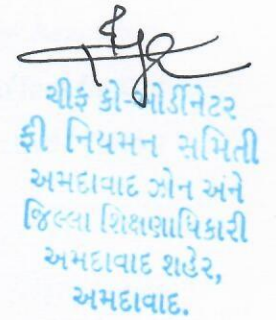 ચીફ કો-ઓર્ડીનેટર
ફી નિયમન સમિતી
અમદાવાદ ઝોન અંને
જિલ્લા શિક્ષણાધિકારી
અમદાવાદ શહેર,
અમદાવાદ.